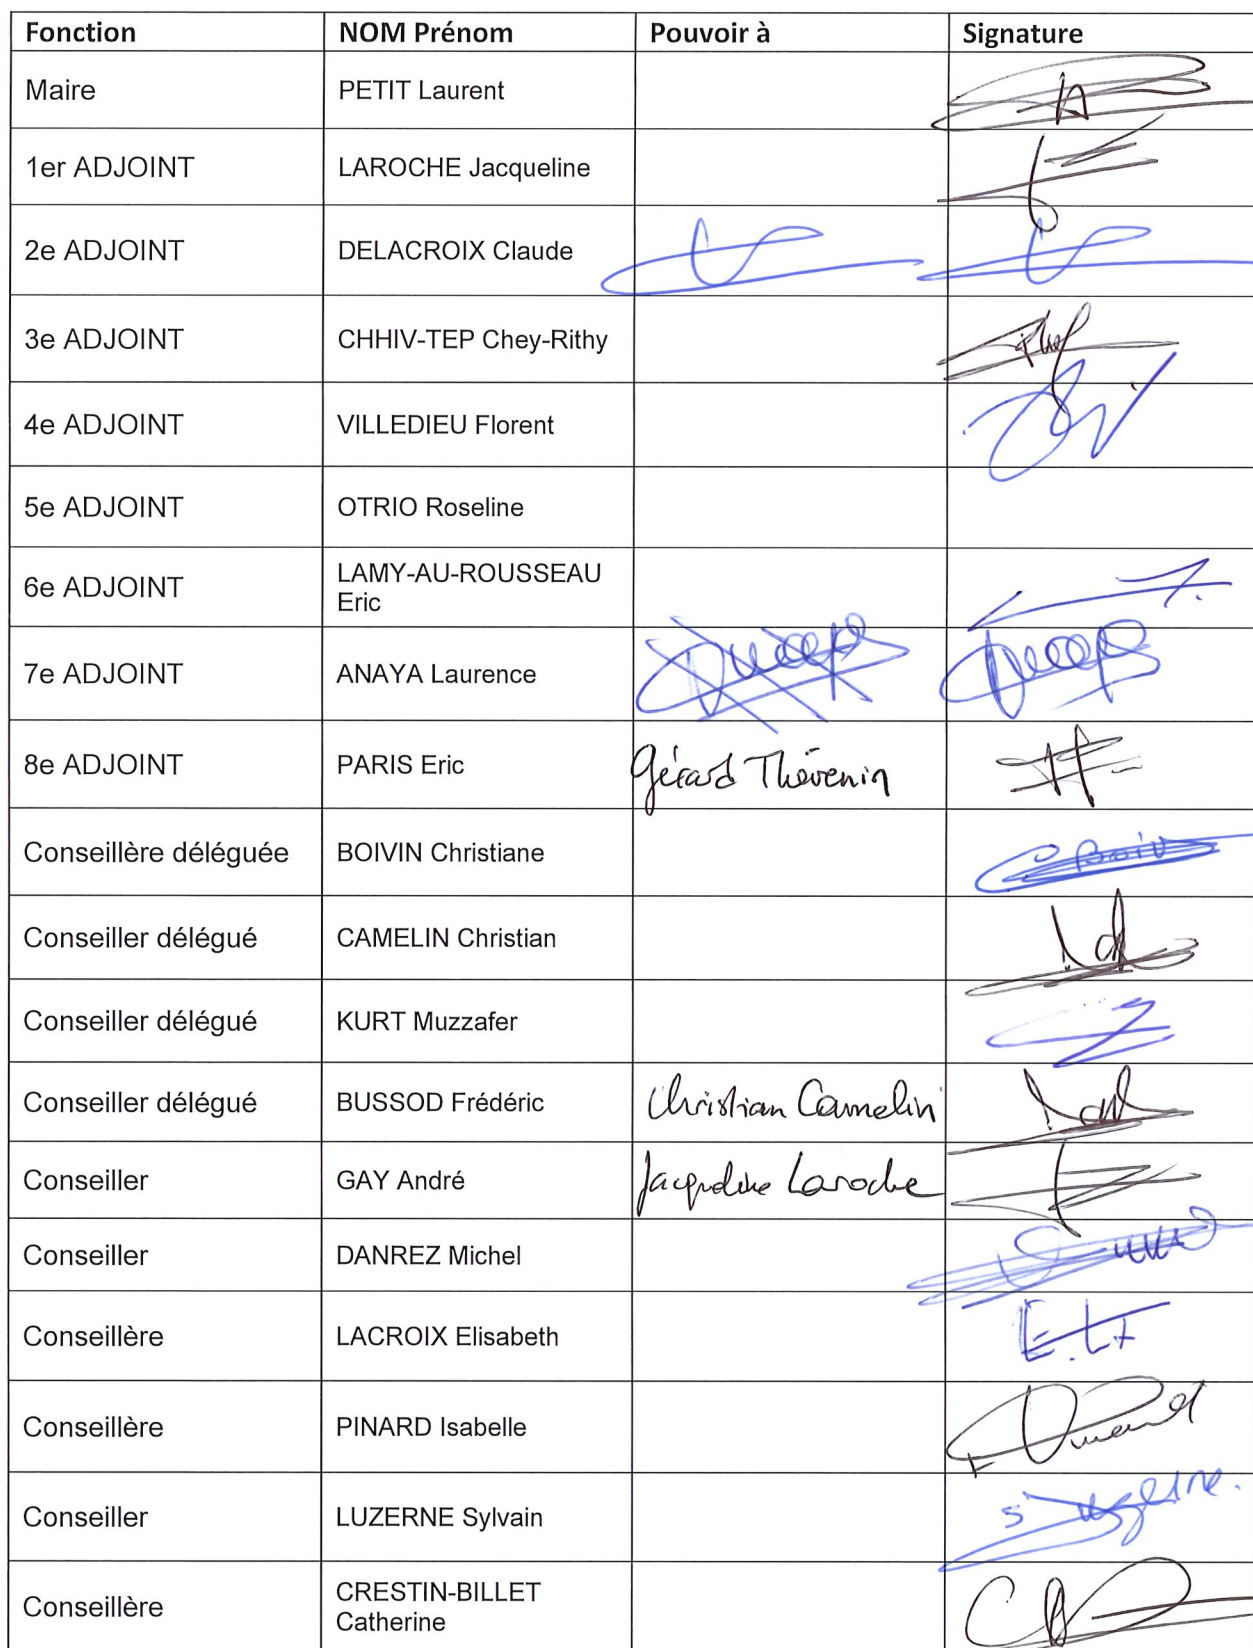 Fonction NOM Prénom Pouvoir à Signature
Maire PETIT Laurent
1er ADJOINT LAROCHE Jacqueline
2e ADJOINT DELACROIX Claude
3e ADJOINT CHHIV-TEP Chey-Rithy
4e ADJOINT VILLEDIEU Florent
5e ADJOINT OTRIO Roseline
6e ADJOINT LAMY-AU-ROUSSEAU
Eric
7e ADJOINT ANAYA Laurence
8e ADJOINT PARIS Eric Gérard Thévenin
Conseillère déléguée BOIVIN Christiane
Conseiller délégué CAMELIN Christian
Conseiller délégué KURT Muzzafer
Conseiller délégué BUSSOD Frédéric Christian Camelin
Conseiller GAY André Jacqueline Laroche
Conseiller DANREZ Michel
Conseillère LACROIX Elisabeth E.LX
Conseillère PINARD Isabelle
Conseiller LUZERNE Sylvain
Conseillère CRESTIN-BILLET
Catherine